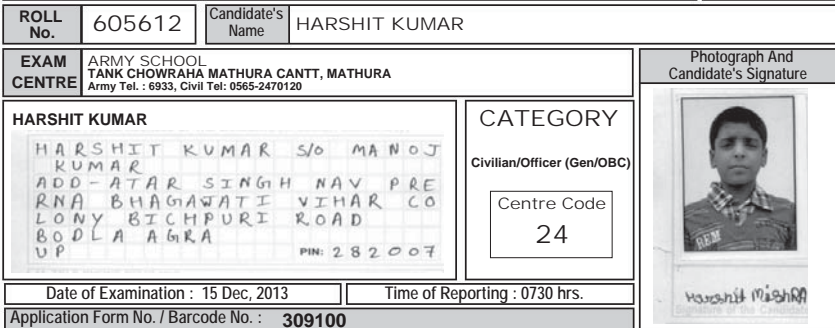 ROLL No. 605612 Candidate's Name HARSHIT KUMAR
EXAM CENTRE
ARMY SCHOOL
TANK CHOWRAHA MATHURA CANTT, MATHURA
Army Tel. : 6933, Civil Tel: 0565-2470120
Photograph And
Candidate's Signature
HARSHIT KUMAR
HARSHIT KUMAR S/O MANOJ
KUMAR
ADD-ATAR SINGH NAV PRE
RNA BHAGAWATI VIHAR CO
LONY BICHPURI ROAD
BODLA AGRA
UP PIN: 282007
CATEGORY
Civilian/Officer (Gen/OBC)
Centre Code
24
REM
Harshit Mishra
Signature of the Candidate
Date of Examination : 15 Dec, 2013 Time of Reporting : 0730 hrs.
Application Form No. / Barcode No. : 309100